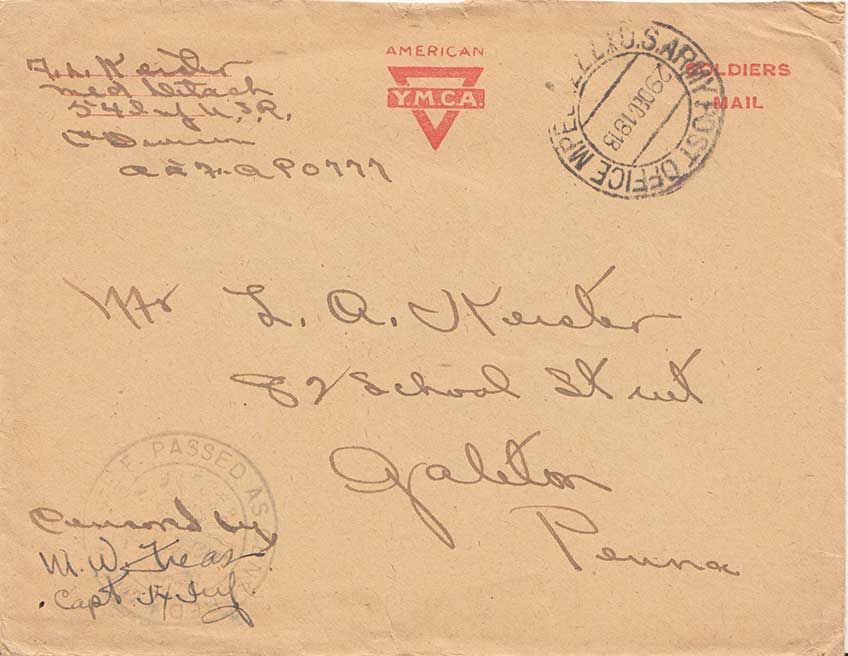 F. L. Keister
Med Detach
54 Inf U.S.R.
6th Division
A E F. A P O 777
AMERICAN
Y.M.C.A.
SOLDIERS
MAIL
U.S. ARMY POST OFFICE MPES
29 DEC 1918
Mr L. A. Keister
82 School Street
Galeton
Penna
PASSED AS
Censored by
M. W.
Capt. 54 Inf.